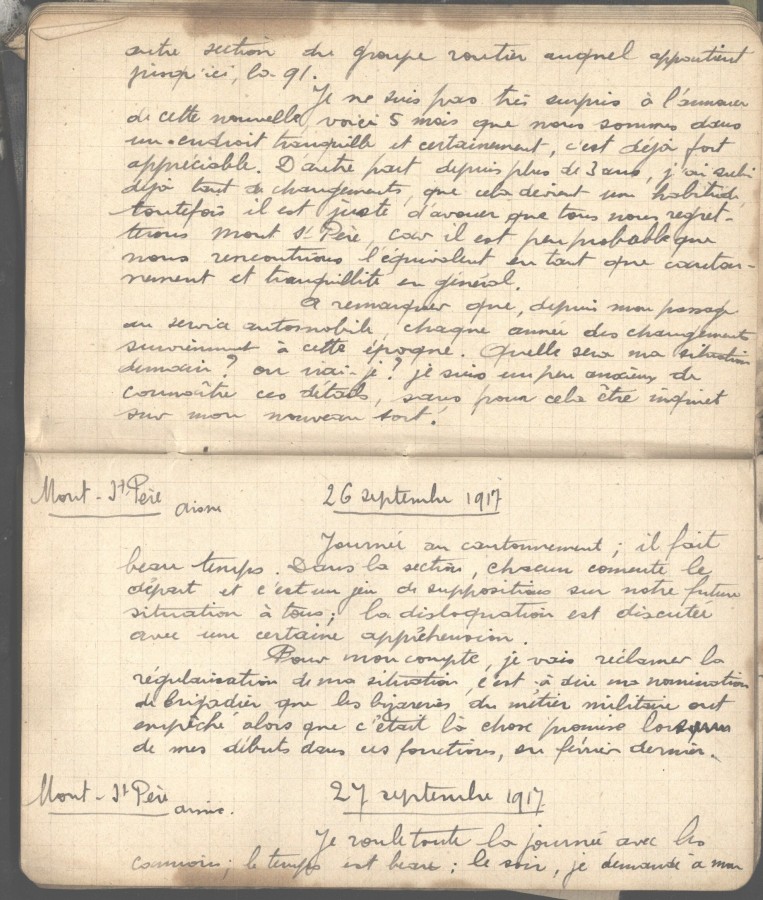 autre section du groupe routier auquel appartient
jusqu'ici, la 91.
Je ne suis pas très surpris à l'annonce
de cette nouvelle, voici 5 mois que nous sommes dans
un endroit tranquille et certainement, c'est déjà fort
appréciable. D'autre part depuis plus de 3 ans, j'ai subi
déjà tant de changements, que cela devient une habitude,
toutefois il est juste d'avouer que tous nous regret-
terons Mont St Père, car il est peu probable que
nous rencontrions l'équivalent en tant que canton-
nement et tranquillité en général.
A remarquer que, depuis mon passage
au service automobile, chaque année des changements
surviennent à cette époque. Quelle sera ma situation
demain? où irai-je? je suis un peu anxieux de
connaître ces détails, sans pour cela être inquiet
sur mon nouveau sort!
Mont-St Père aisne 26 septembre 1917
Journée au cantonnement; il fait
beau temps. Dans la section, chacun comente le
départ et c'est un jeu de suppositions sur notre future
situation à tous; la disloquation est discutée
avec une certaine appréhension.
Pour mon compte, je vais réclamer la
régularisation de ma situation, c'est-à dire ma nomination
de brigadier que les bizareries du métier militaire ont
empêché alors que c'était là chose promise lors
de mes débuts dans ces fonctions, en février dernier.
Mont-St Père aisne. 27 septembre 1917
Je roule toute la journée avec les
camions; le temps est beau; le soir, je demande à mon